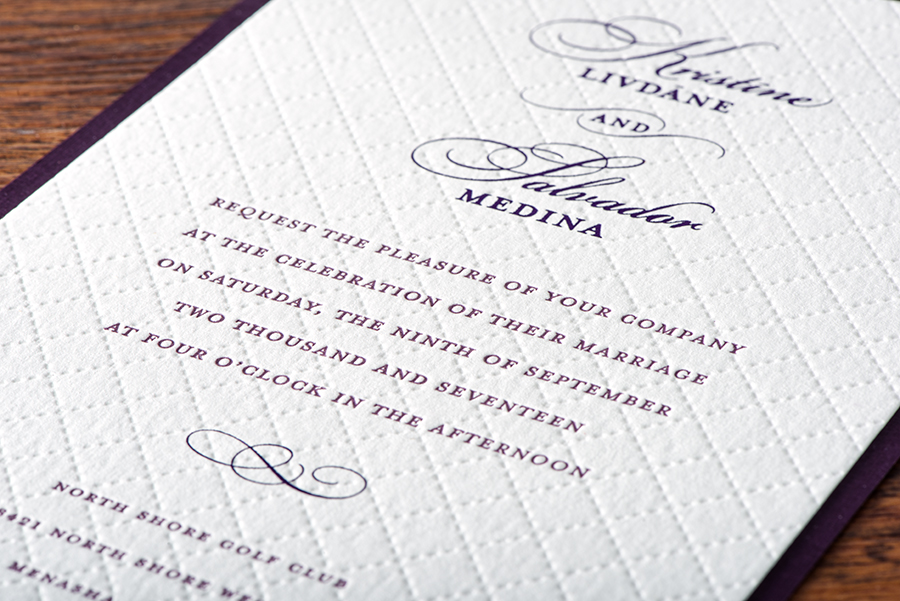 Kristine
LIVDANE
AND
Salvador
MEDINA
REQUEST THE PLEASURE OF YOUR COMPANY
AT THE CELEBRATION OF THEIR MARRIAGE
ON SATURDAY, THE NINTH OF SEPTEMBER
TWO THOUSAND AND SEVENTEEN
AT FOUR O'CLOCK IN THE AFTERNOON
NORTH SHORE GOLF CLUB
8421 NORTH SHORE
MENASHA